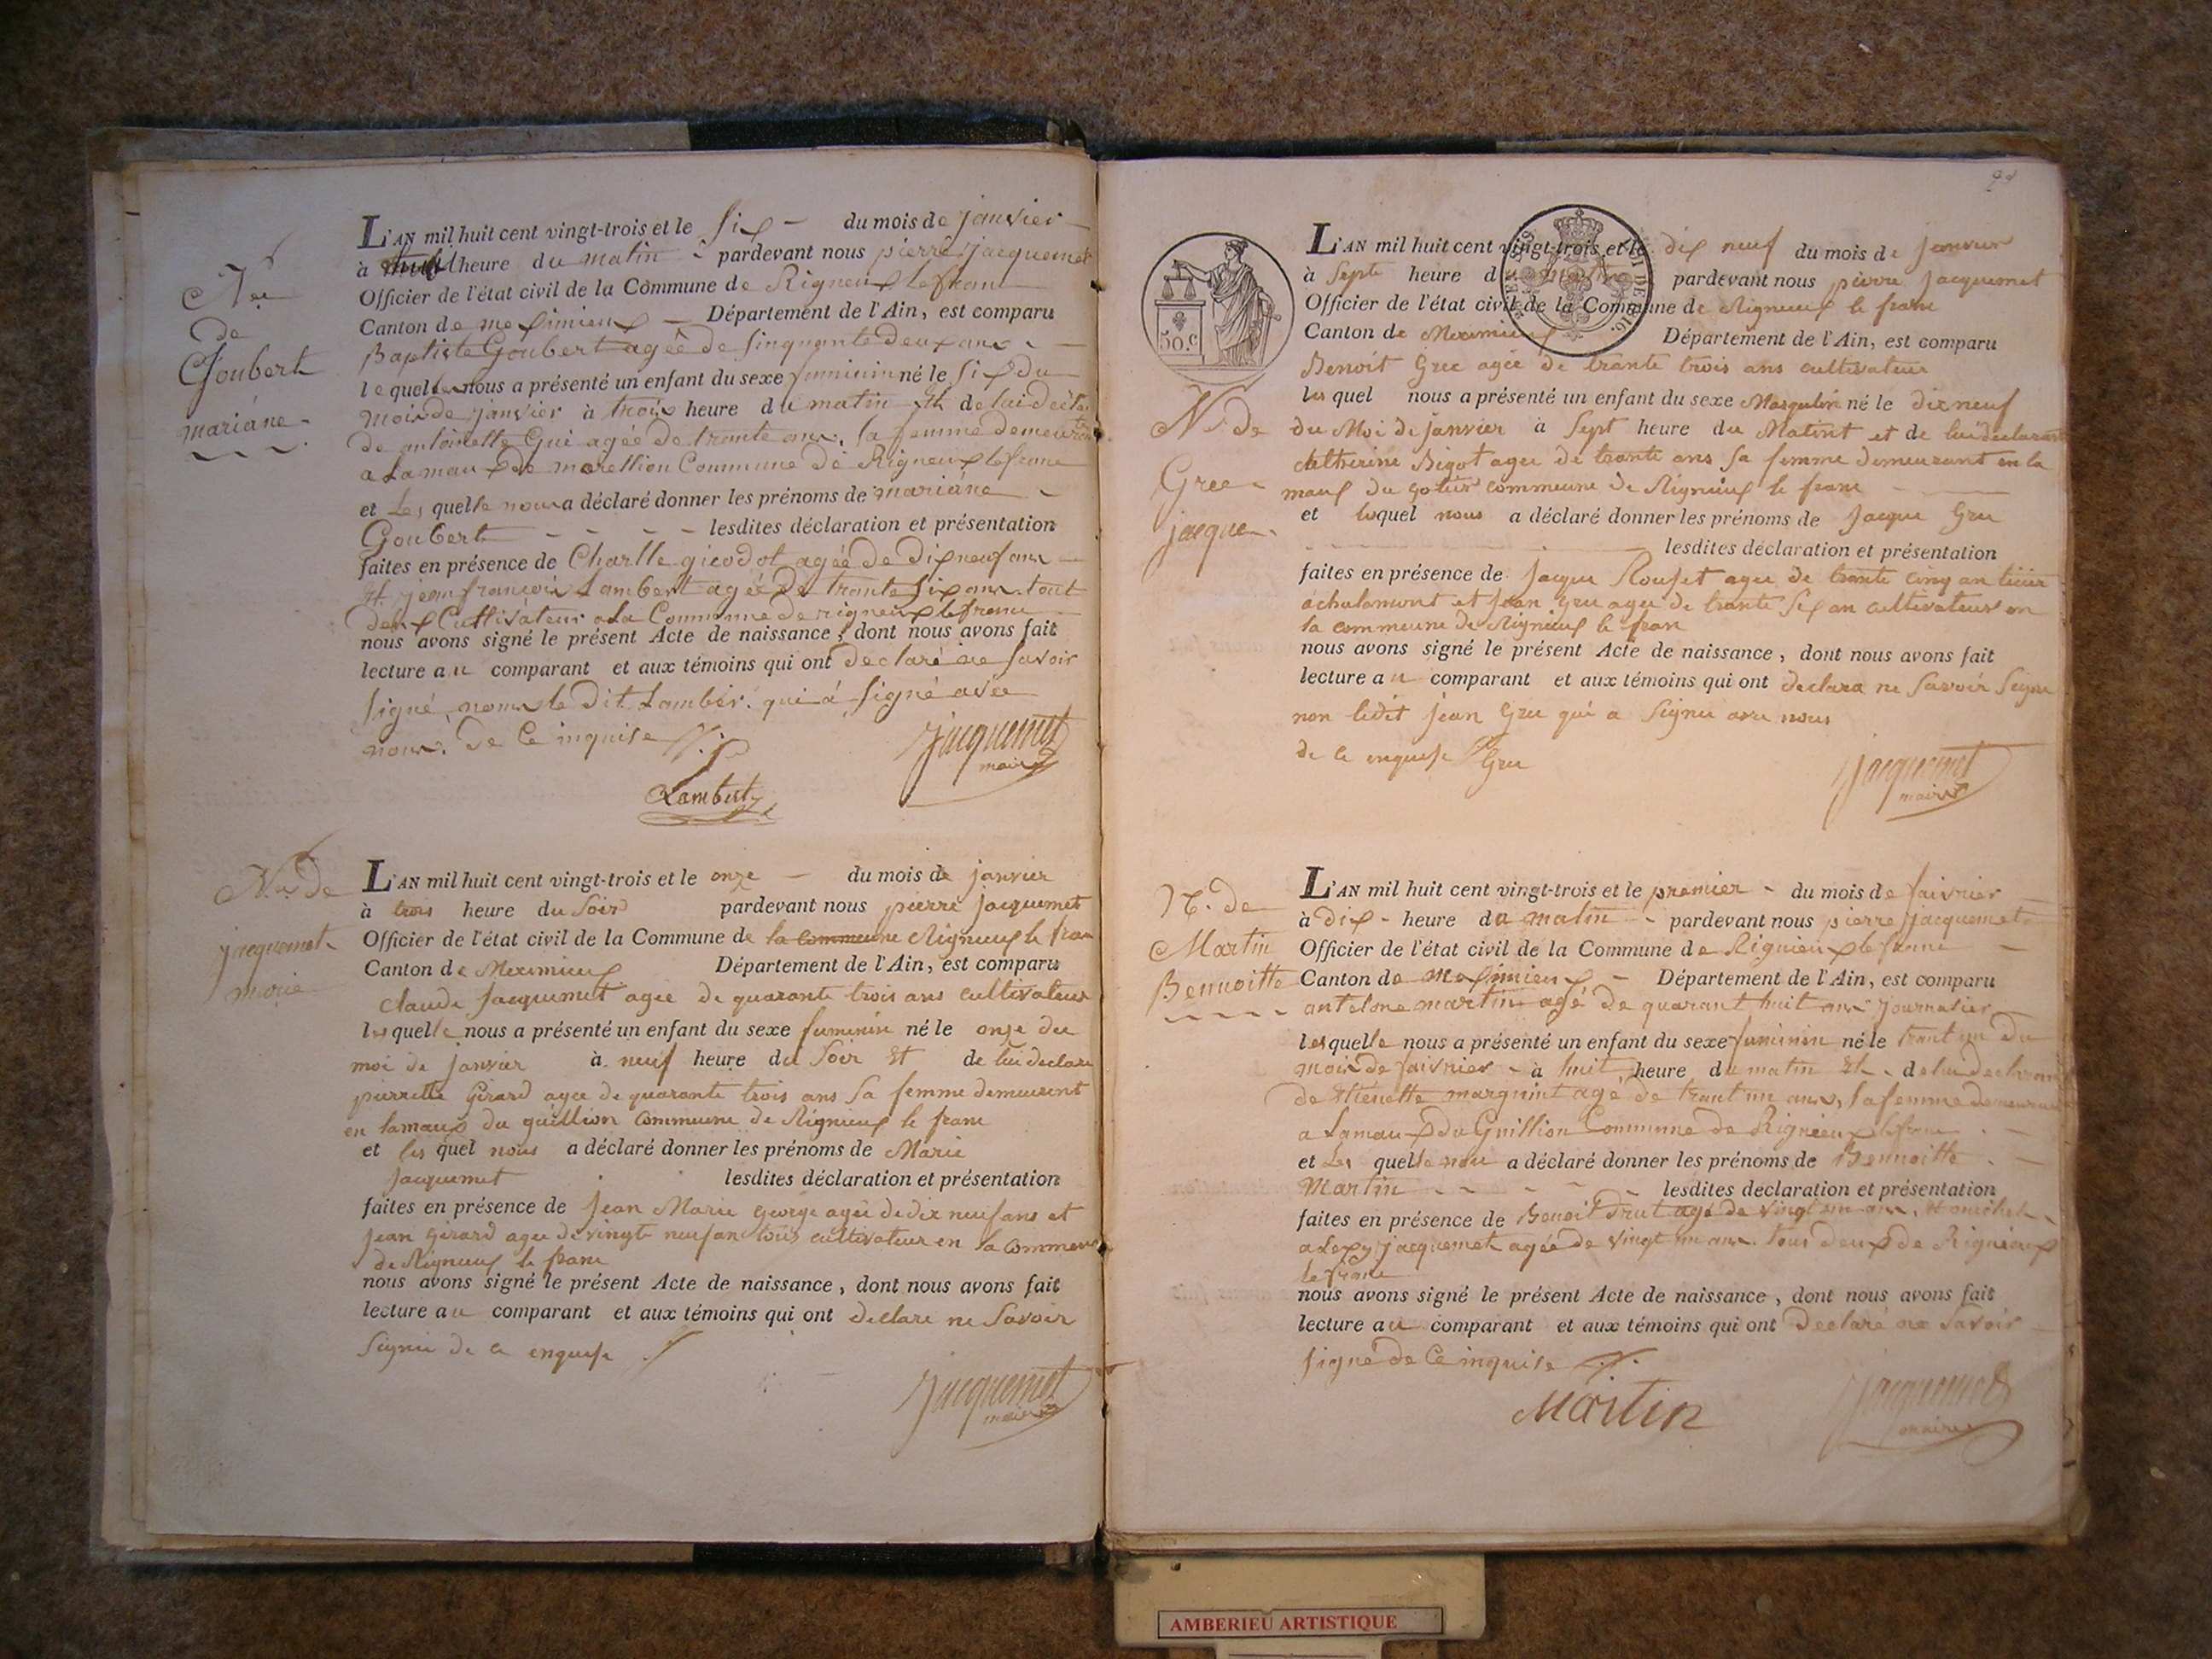 Née
de
Goubert
mariane
L'AN mil huit cent vingt-trois et le six du mois de janvier
à heure du matin pardevant nous pierre jacquemet
Officier de l'état civil de la Commune de Rigneux lefranc
Canton de meximieux Département de l'Ain, est comparu
Baptiste Goubert agée de sinquante deux ans
lequelle nous a présenté un enfant du sexe feminin né le six du
mois de janvier à trois heure du matin Et de lui
de antoinette Gui agée de trante ans, sa femme
a Lamaux de morellion Commune de Rigneux lefranc
et Les quelle nous a déclaré donner les prénoms de mariáne
Goubert lesdites déclaration et présentation
faites en présence de Charlle gicodot agée de dix neuf ans
Et jean francois Lambert agée De trante six ans tout
deux Cultivateur a La Commune de rigneux lefranc
nous avons signé le présent Acte de naissance, dont nous avons fait
lecture au comparant et aux témoins qui ont declaré ne savoir
signé, le dit Lamber qui á signé avec
nous. De Ce inquise
Jacquemet
maire
Lambert
Née De
jacquemet
marie
L'AN mil huit cent vingt-trois et le onze du mois de janvier
à trois heure du soir pardevant nous pierre jacquemet
Officier de l'état civil de la Commune de la commeune Rigneux le franc
Canton de Meximieux Département de l'Ain, est comparu
claude Jacquemet agee de quarante trois ans cultivateur
lesquelle nous a présenté un enfant du sexe feminin né le onze du
moi de janvier à neuf heure du soir Et de lui declare
pierrette Girard agee de quarante trois ans sa femme demeurent
en lamaux du guillion commune de Rigneux le franc
et les quel nous a déclaré donner les prénoms de Marie
Jacquemet lesdites déclaration et présentation
faites en présence de Jean Marie george agée de dix neuf ans et
Jean Girard agee de vingte neuf an tous cultivateur en la commeune
de Rigneux le franc
nous avons signé le présent Acte de naissance, dont nous avons fait
lecture au comparant et aux témoins qui ont declare ne savoir
signie de ce enquise
Jacquemet
maire
50.c
N. de
Gree
jacque
L'AN mil huit cent vingt-trois et le dix neuf du mois de janvier
à sept heure du pardevant nous pierre Jacquemet
Officier de l'état civil de la Commune de Rigneux le franc
Canton de Meximieux Département de l'Ain, est comparu
Benoit Gree agée de trante trois ans cultivateur
les quel nous a présenté un enfant du sexe Masqulin né le dix neuf
du Moi de janvier à sept heure du Matint et de lui declarant
Catherine Bigot agee de trante ans sa femme demeurant en la
maux du commeune de Rigneux le franc
et lequel nous a déclaré donner les prénoms de Jacque Gree
lesdites déclaration et présentation
faites en présence de Jacque Roujet agee de trante cinq an
achalamont et Jean gree agee de trante six an cultivateur en
la commeune de Rigneux le franc
nous avons signé le présent Acte de naissance, dont nous avons fait
lecture au comparant et aux témoins qui ont declara ne savoir signe
non ledit jean Gree qui a signee avec nous
de ce enquise Gree
Jacquemet
maire
N. de
Martin
Bennoitte
L'AN mil huit cent vingt-trois et le premier du mois de faivrier
à dix heure du matin pardevant nous pierre jacquemet
Officier de l'état civil de la Commune de Rignieux le franc
Canton de meximieux Département de l'Ain, est comparu
antelme martin agé de quarant huit ans journalier
lesquelle nous a présenté un enfant du sexe feminin né le trant un du
mois de faivrier à huit heure du matin Et de lui declarant
de marguint agé de trant un ans, sa femme
a Lamaux du Guillion Commune de Rigneux lefranc
et Les quelle nou a déclaré donner les prénoms de Bennoitte
Martin lesdites declaration et présentation
faites en présence de Benoit Drut agé de vingt un ans, Et michel
alexy jacquemet agée de vingt un ans tous deux de Rigneux
le franc
nous avons signé le présent Acte de naissance, dont nous avons fait
lecture au comparant et aux témoins qui ont declaré ne savoir
signé de Ce inquise
Martin
Jacquemet
maire
AMBERIEU ARTISTIQUE